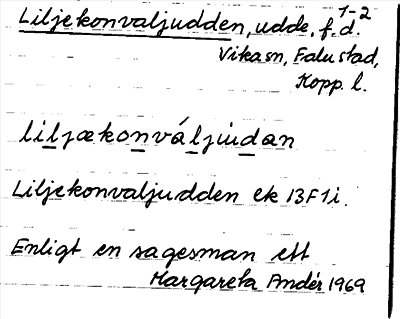 Liljekonvaljudden, udde, f.d. 1-2
Vikasn, Falu stad,
Kopp. l.
liljækonváljúdan
Liljekonvaljudden ek 13F1i.
Enligt en sagesman ett
Margareta Andér 1969